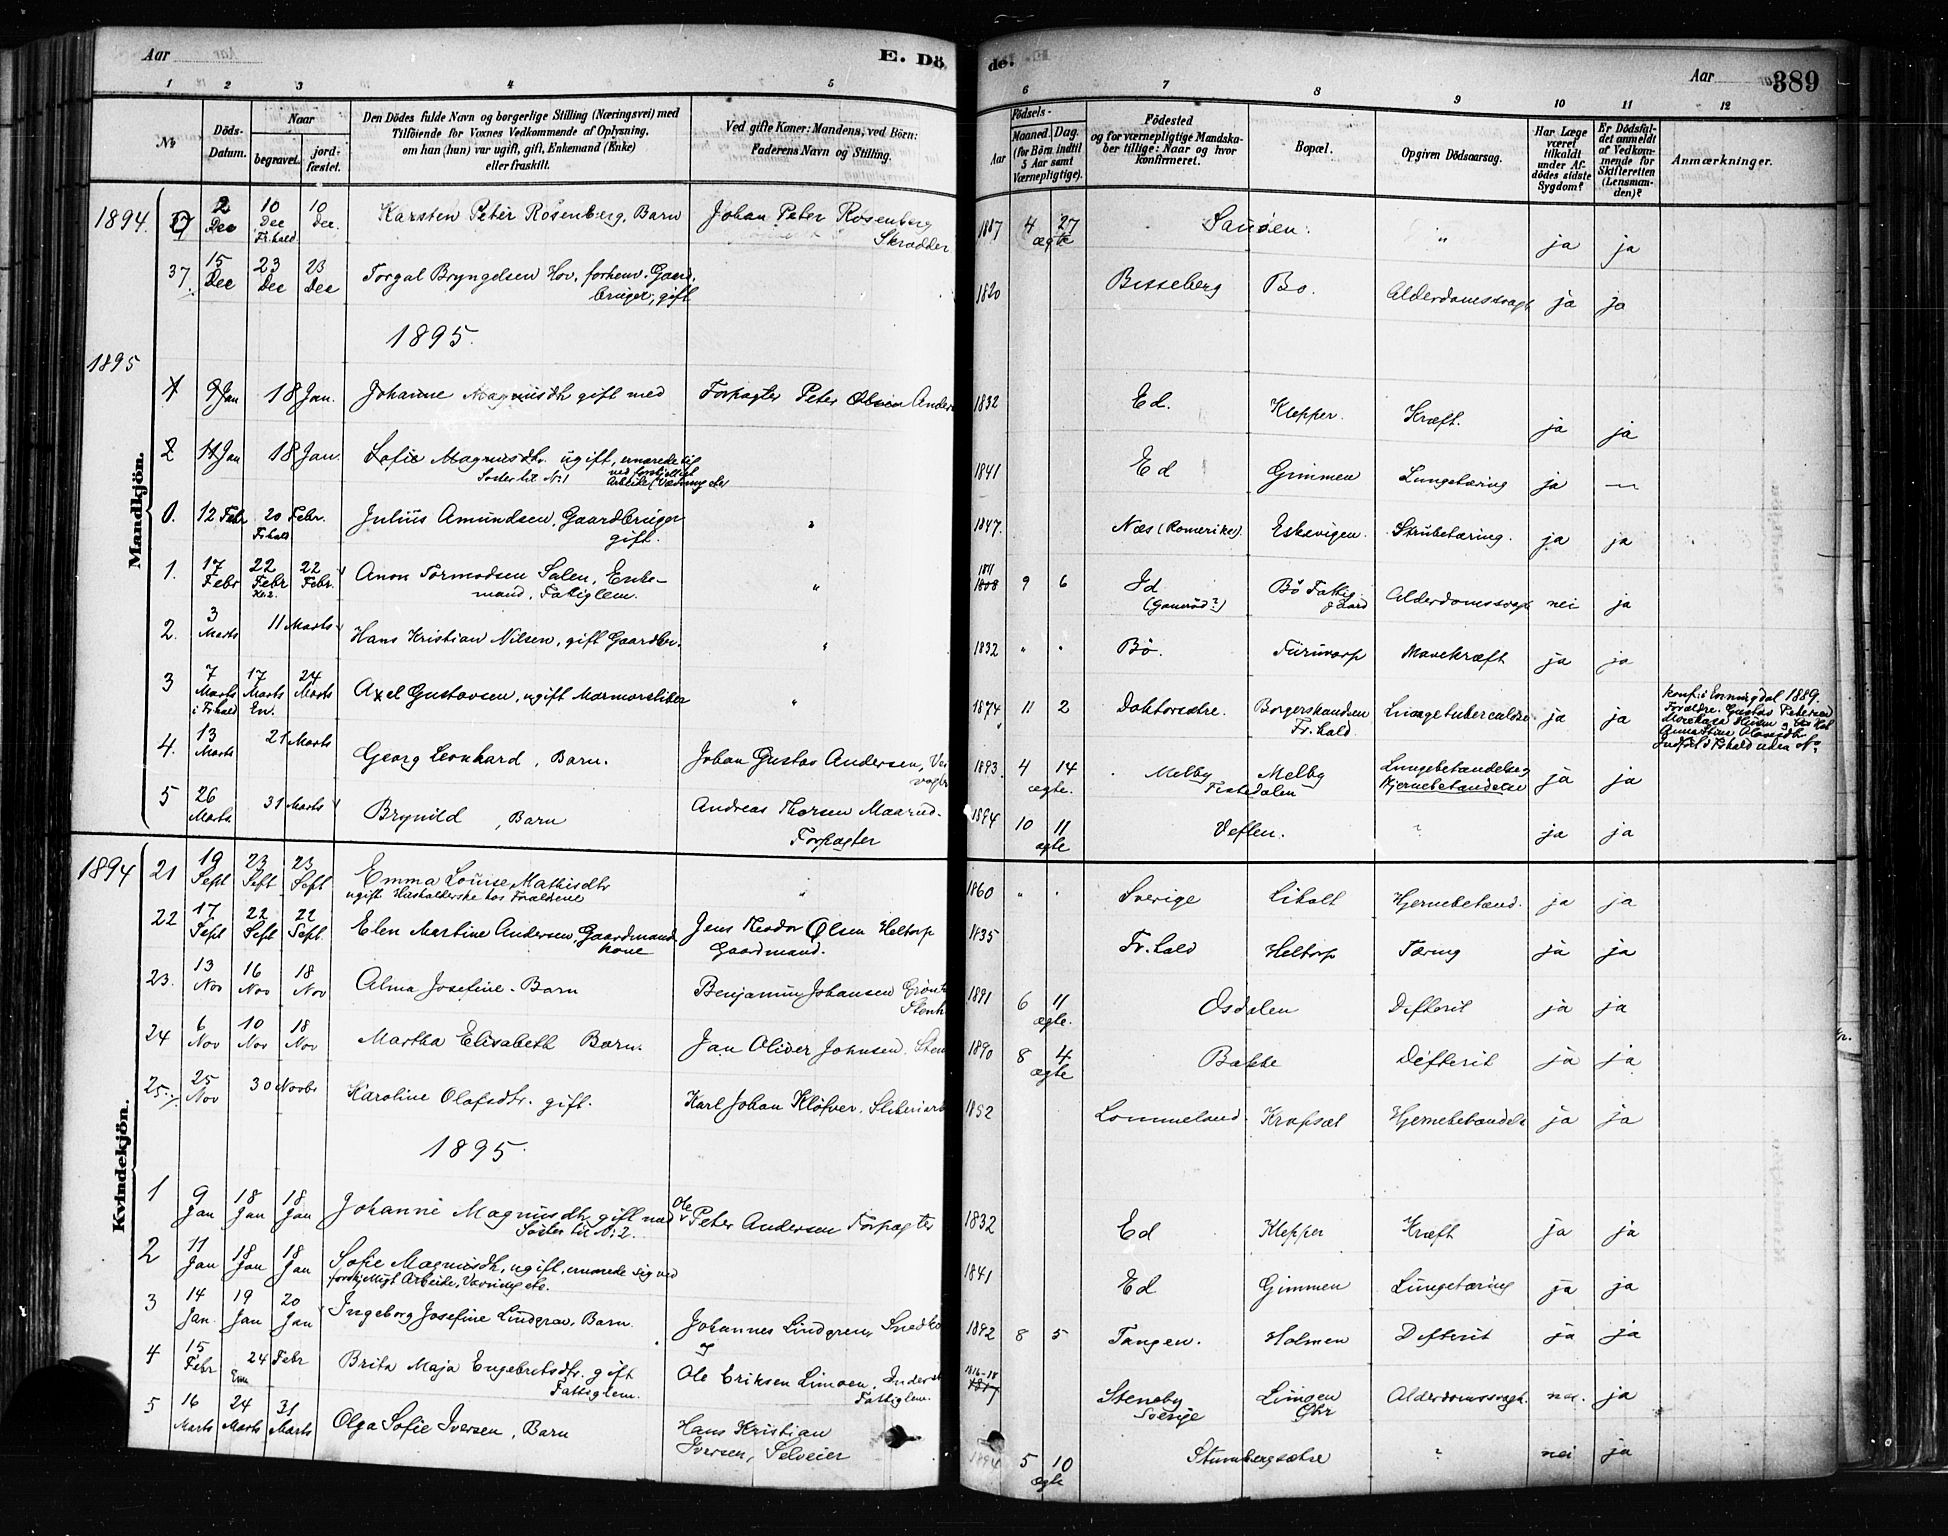 Aar
E. Dö
de.
Aar
389
1 2 3 4 5 6 7 8 9 10 11 12
No
Döds-Datum.
Naar
begravet.
jord-fæstet.
Den Dödes fulde Navn og borgerlige Stilling (Næringsvei) med
Tilföiende for Voxnes Vedkommende af Oplysning,
om han (hun) var ugift, gift, Enkemand (Enke)
eller fraskilt.
Ved gifte Koner: Mandens, ved Börn:
Faderens Navn og Stilling.
Födsels-
Aar
Maaned. Dag.
(for Börn indtil
5 Aar samt
Værnepligtige).
Födested
og for værnepligtige Mandska-
ber tillige: Naar og hvor
konfirmeret.
Bopæl.
Opgiven Dödsaarsag.
Har Læge
været
tilkaldt
under Af-
dödes sidste
Sygdom?
Er Dödsfal-
det anmeldt
af Vedkom-
mende for
Skifteretten
(Lensman-
den)?
Anmærkninger.
Mandkjön.
1894. 2 Dec 10 Dec Fr.hald 10 Dec. Karsten Peter Rosenberg, Barn Johan Peter Rosenberg Skrædder 1887 4 27 ægte Sauøen " ja ja
37. 15 Dec 23 Dec 23 Dec Torgal Bryngelsen Hov, forhenv. Gaardbruger, gift 1820 Bisseberg Bø. Alderdomssvagh ja ja
1895.
1895
1 9 Jan 18 Jan. Johanne Magnusdtr gift med Forpagter Peter Olsen Anders 1832 Ed. Klepper. Kræft. ja ja
2 11 Jan 18 Jan. Sofie Magnusdtr. ugift, ernærede sig ved forskjelligt Arbeide (Vævning etc)
Søster til No 1 1841 Ed Gimmen Lungetæring ja —
0. 12 Febr 20 Febr. Fr.hald Julius Amundsen, Gaardbruger gift. " 1847. Næs (Romerike). Eskevigen. Strubetæring. ja ja
1. 17 Febr 22 Febr Kl 2. 22 Febr. Anon Tormodsen Salen, Enkemand, Fattiglem. " 1811 1808 9 6 Id Bø Fattiggaard Alderdomssvagh nei ja
2. 3 Marts 11 Marts Hans Kristian Nilsen, gift Gaardbr. " 1832 " " Bø. Furuvarp Mavekræft ja ja
3 7 Marts i Fr.hald 17 Marts En. 24 Marts Axel Gustavsen, ugift Marmorsliber " 1874 11 2 Doktorsætre. Borgerskandsen Fr.hald Lungetuberculose ja ja
konf. i Enningdal 1889.
Forældre. Gustav Petersen
4. 13 Marts 21 Marts Georg Leonhard, Barn. Johan Gustav Andersen, 1893. 4 14 ægte. Melby Melby Tistedalen Lungebetændelse, Hjernebetændelse ja ja
5 26 Marts 31 Marts Brynild, Barn Andreas Thorsen Maarud. Forpagter 1894 10 11 ægte Veften. ? ja ja
Kvindekjön.
1894 21 19 Sept 23 Sept 23 Sept Emma Louise Mathisdtr
ugift Husholderske hos Forældrene " 1860 " " Sverige Liholt Hjernebetænd. ja ja
22 17 Sept 22 Sept 22 Sept. Elen Martine Andersen, Gaardmandskone Jens Teodor Olsen Heltorp Gaardmand. 1835 Fr.hald Heltorp Tæring ja ja
23. 13 Nov 16 Nov 18 Nov Alma Josefine - Barn Benjamin Johansen 1891 6 11 ægte. Osdalen Difterit ja ja
24 6 Nov 10 Nov 18 Nov Martha Elisabeth Barn. Jan Oliver Johnsen. 1890 8 4 ægte Bakke Difterit ja ja
25. 25 Nov 30 Novbr Karoline Olafsdtr. gift. Karl Johan Kløfver. Sliberiarb 1852 Lommeland. Krapsæt Hjernebetændels ja ja
1895.
1 9 Jan 18 Jan 18 Jan Johanne Magnusdtr gift med Ole Peter Andersen Forpagter
Søster til No 2. 1832 Ed Klepper Kræft ja ja
2 11 Jan 18 Jan 18 Jan Sofie Magnusdtr, ugift, ernærede sig ved
forskjelligt Arbeide, Vævning etc. 1841 Ed Gimmen Lungetæring ja ja
3 14 Jan. 19 Jan 20 Jan Ingeborg Josefine Lindgren, Barn. Johannes Lindgren, Snedk 1892 8 5 Tangen. Holmen Difterit ja ja
4 15 Febr 24 Febr Brita Maja Engebretsdtr. gift Fattiglem. Ole Eriksen Limoen, Inderst og Fattiglem. 1816-18 1817 Steneby Sverige Limoen Alderdomssvagh. nei. ja
5 16 Marts 24 Marts 31 Marts Olga Sofie Iversen, Barn Hans Kristian Iversen, Selveier 1894 5 10 ægte Stumbergsætre ? nei ja